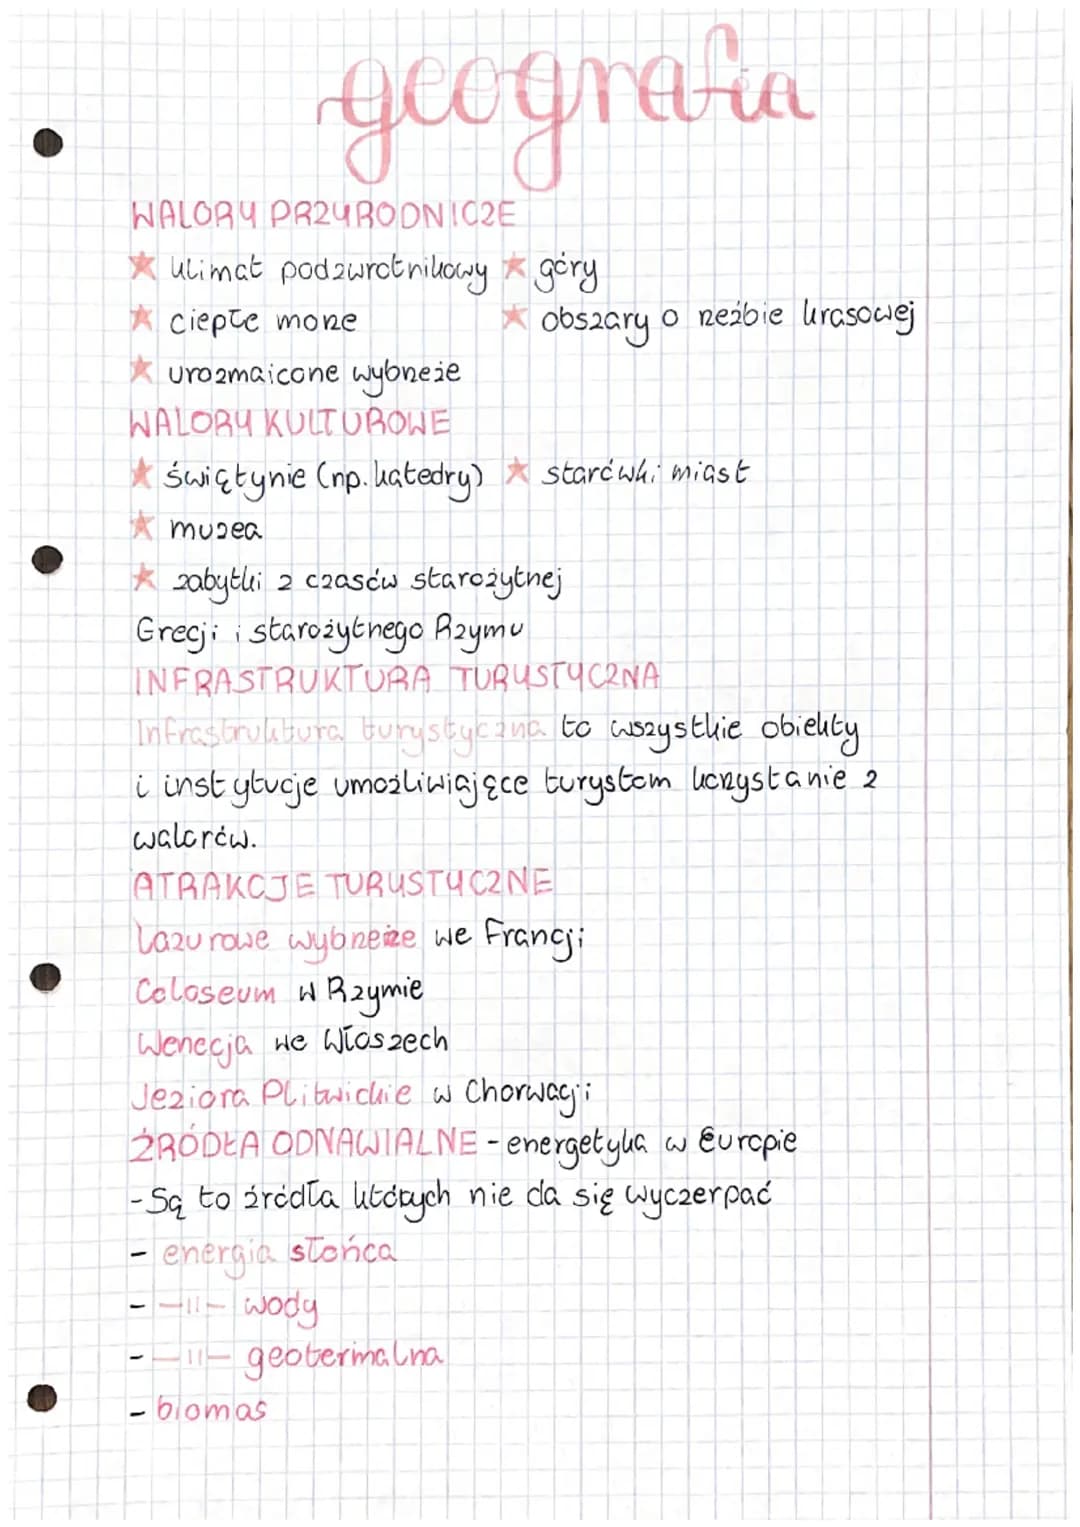 geografia
WALORY PRZYRODNICZE
klimat podzwrotnikowy góry
ciepłe morze obszary o rzeźbie krasowej
urozmaicone wybrzeże
WALORY KULTUROWE
świątynie (np. katedry) starówki miast
muzea
zabytki z czasów starożytnej
Grecji i starożytnego Rzymu
INFRASTRUKTURA TURYSTYCZNA
Infrastruktura turystyczna to wszystkie obiekty
i instytucje umożliwiające turystom korzystanie z
walorów.
ATRAKCJE TURYSTYCZNE
Lazurowe wybrzeże we Francji
Coloseum w Rzymie
Wenecja we Włoszech
Jeziora Plitwickie w Chorwacji
ŹRÓDŁA ODNAWIALNE - energetyka w Europie
- Są to źródła których nie da się wyczerpać
- energia słońca
- —||— wody
- —||— geotermalna
- biomas